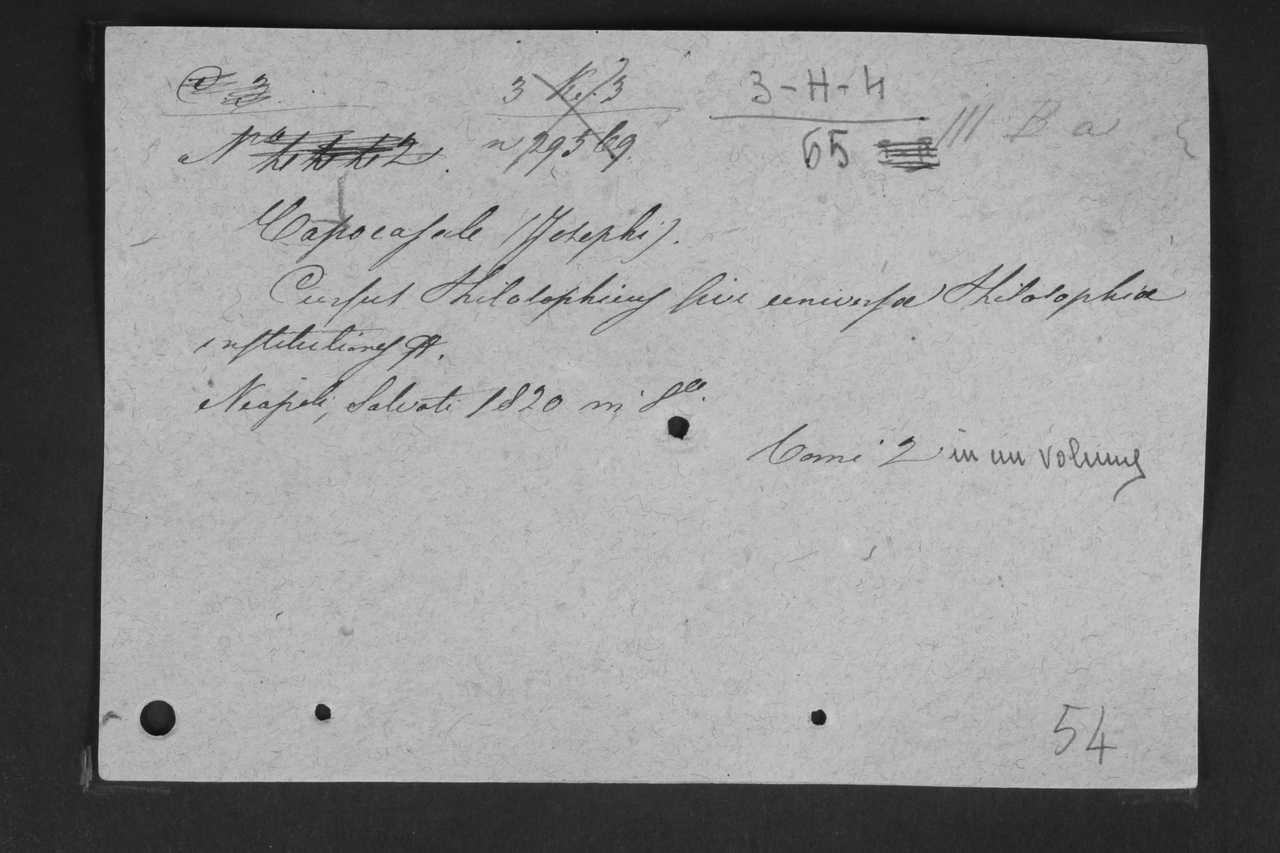 3 3-H-4
65 III B a
Capocasale (Josephi).
Cursus Philosophicus sive universæ Philosophiæ
institutiones
Neapoli, Salvati 1820 in 8º.
Tomi 2 in un volume
54